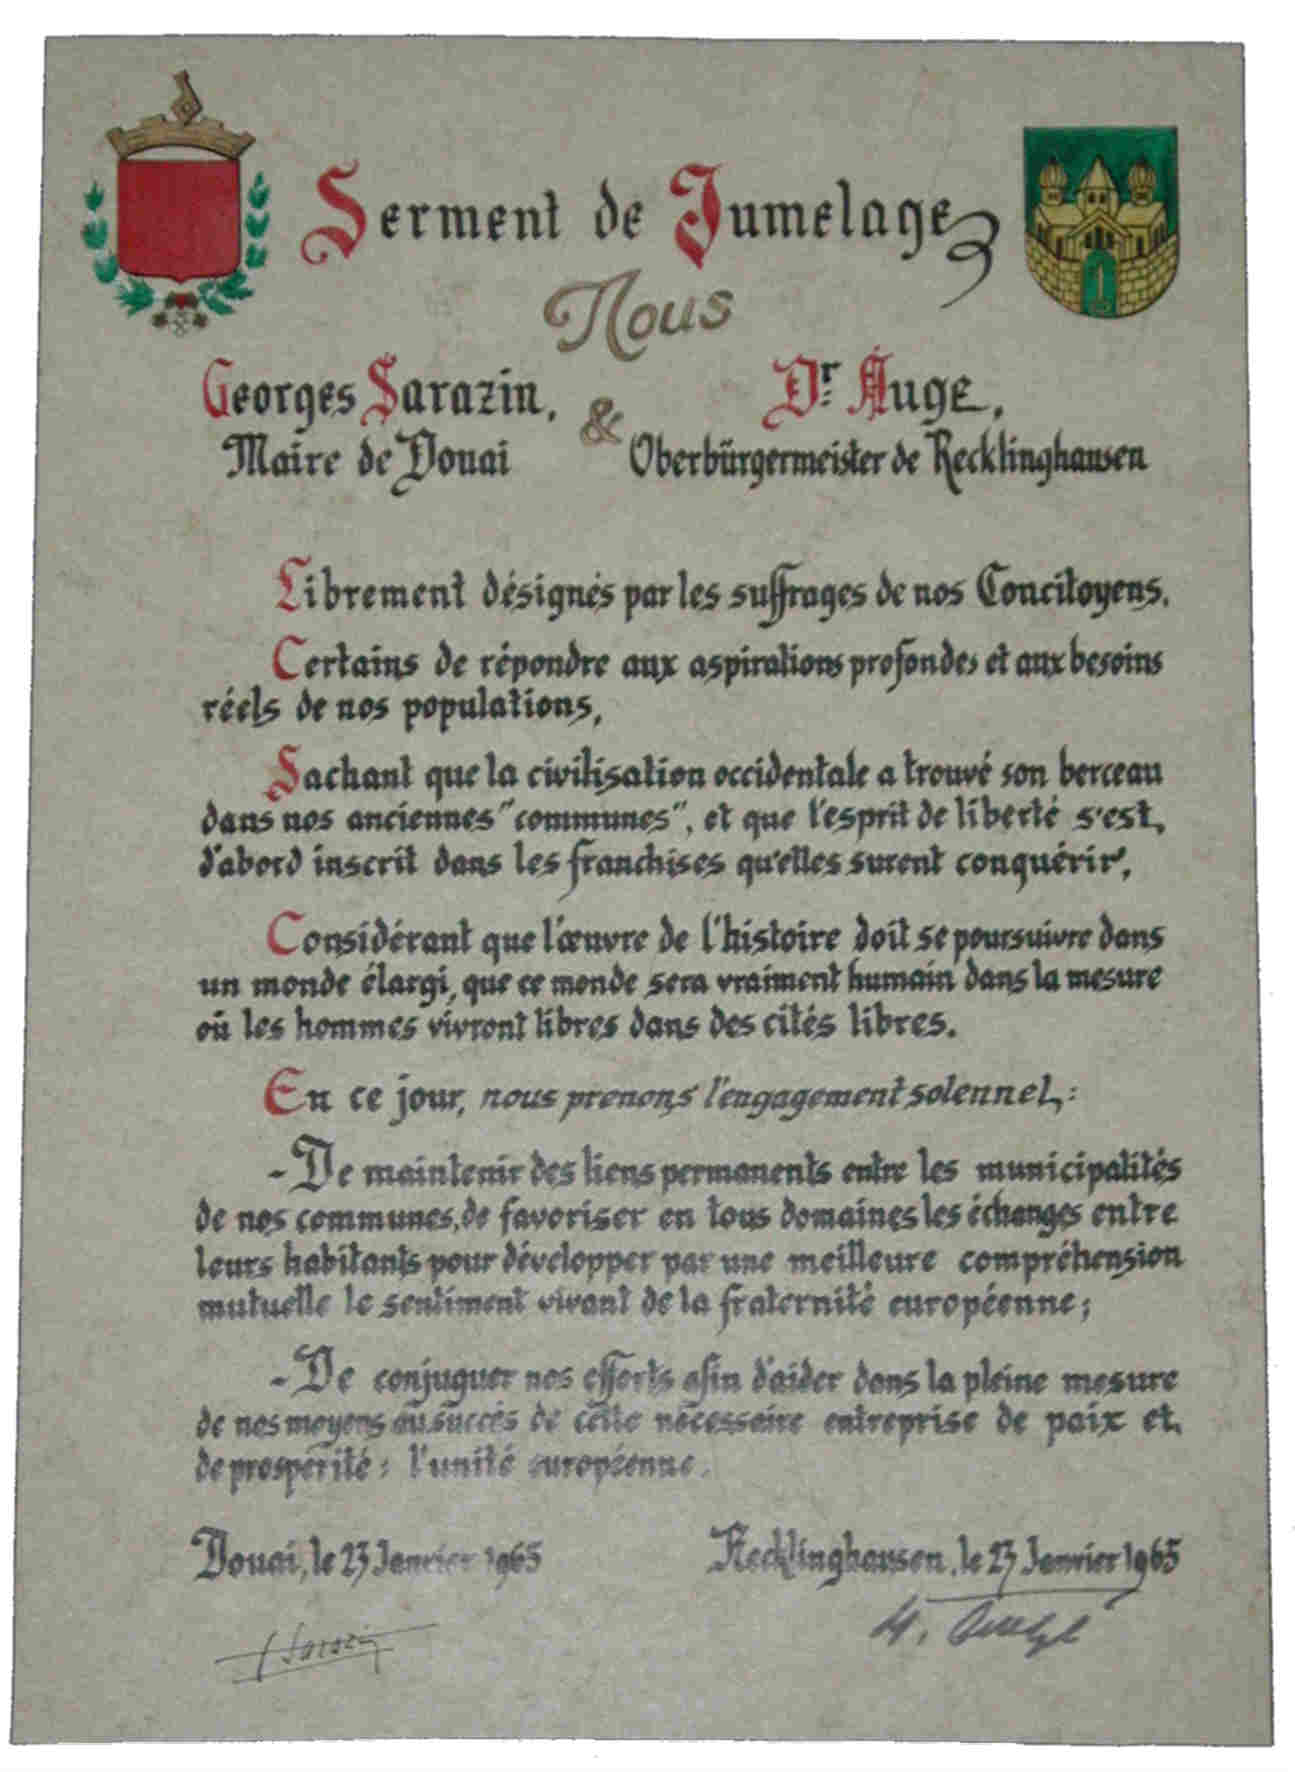 Serment de Jumelage
Nous
Georges Sarazin, & Dr. Auge,
Maire de Douai Oberbürgermeister de Recklinghausen
Librement désignés par les suffrages de nos Concitoyens.
Certains de répondre aux aspirations profondes et aux besoins
réels de nos populations,
Sachant que la civilisation occidentale a trouvé son berceau
dans nos anciennes "communes", et que l'esprit de liberté s'est
d'abord inscrit dans les franchises qu'elles surent conquérir,
Considérant que l'œuvre de l'histoire doit se poursuivre dans
un monde élargi, que ce monde sera vraiment humain dans la mesure
où les hommes vivront libres dans des cités libres.
En ce jour, nous prenons l'engagement solennel :
- De maintenir des liens permanents entre les municipalités
de nos communes, de favoriser en tous domaines les échanges entre
leurs habitants pour développer par une meilleure compréhension
mutuelle le sentiment vivant de la fraternité européenne ;
- De conjuguer nos efforts afin d'aider dans la pleine mesure
de nos moyens au succès de cette nécessaire entreprise de paix et
de prospérité : l'unité européenne.
Douai, le 23 Janvier 1965 Recklinghausen, le 23 Janvier 1965
Sarazin H. Auge